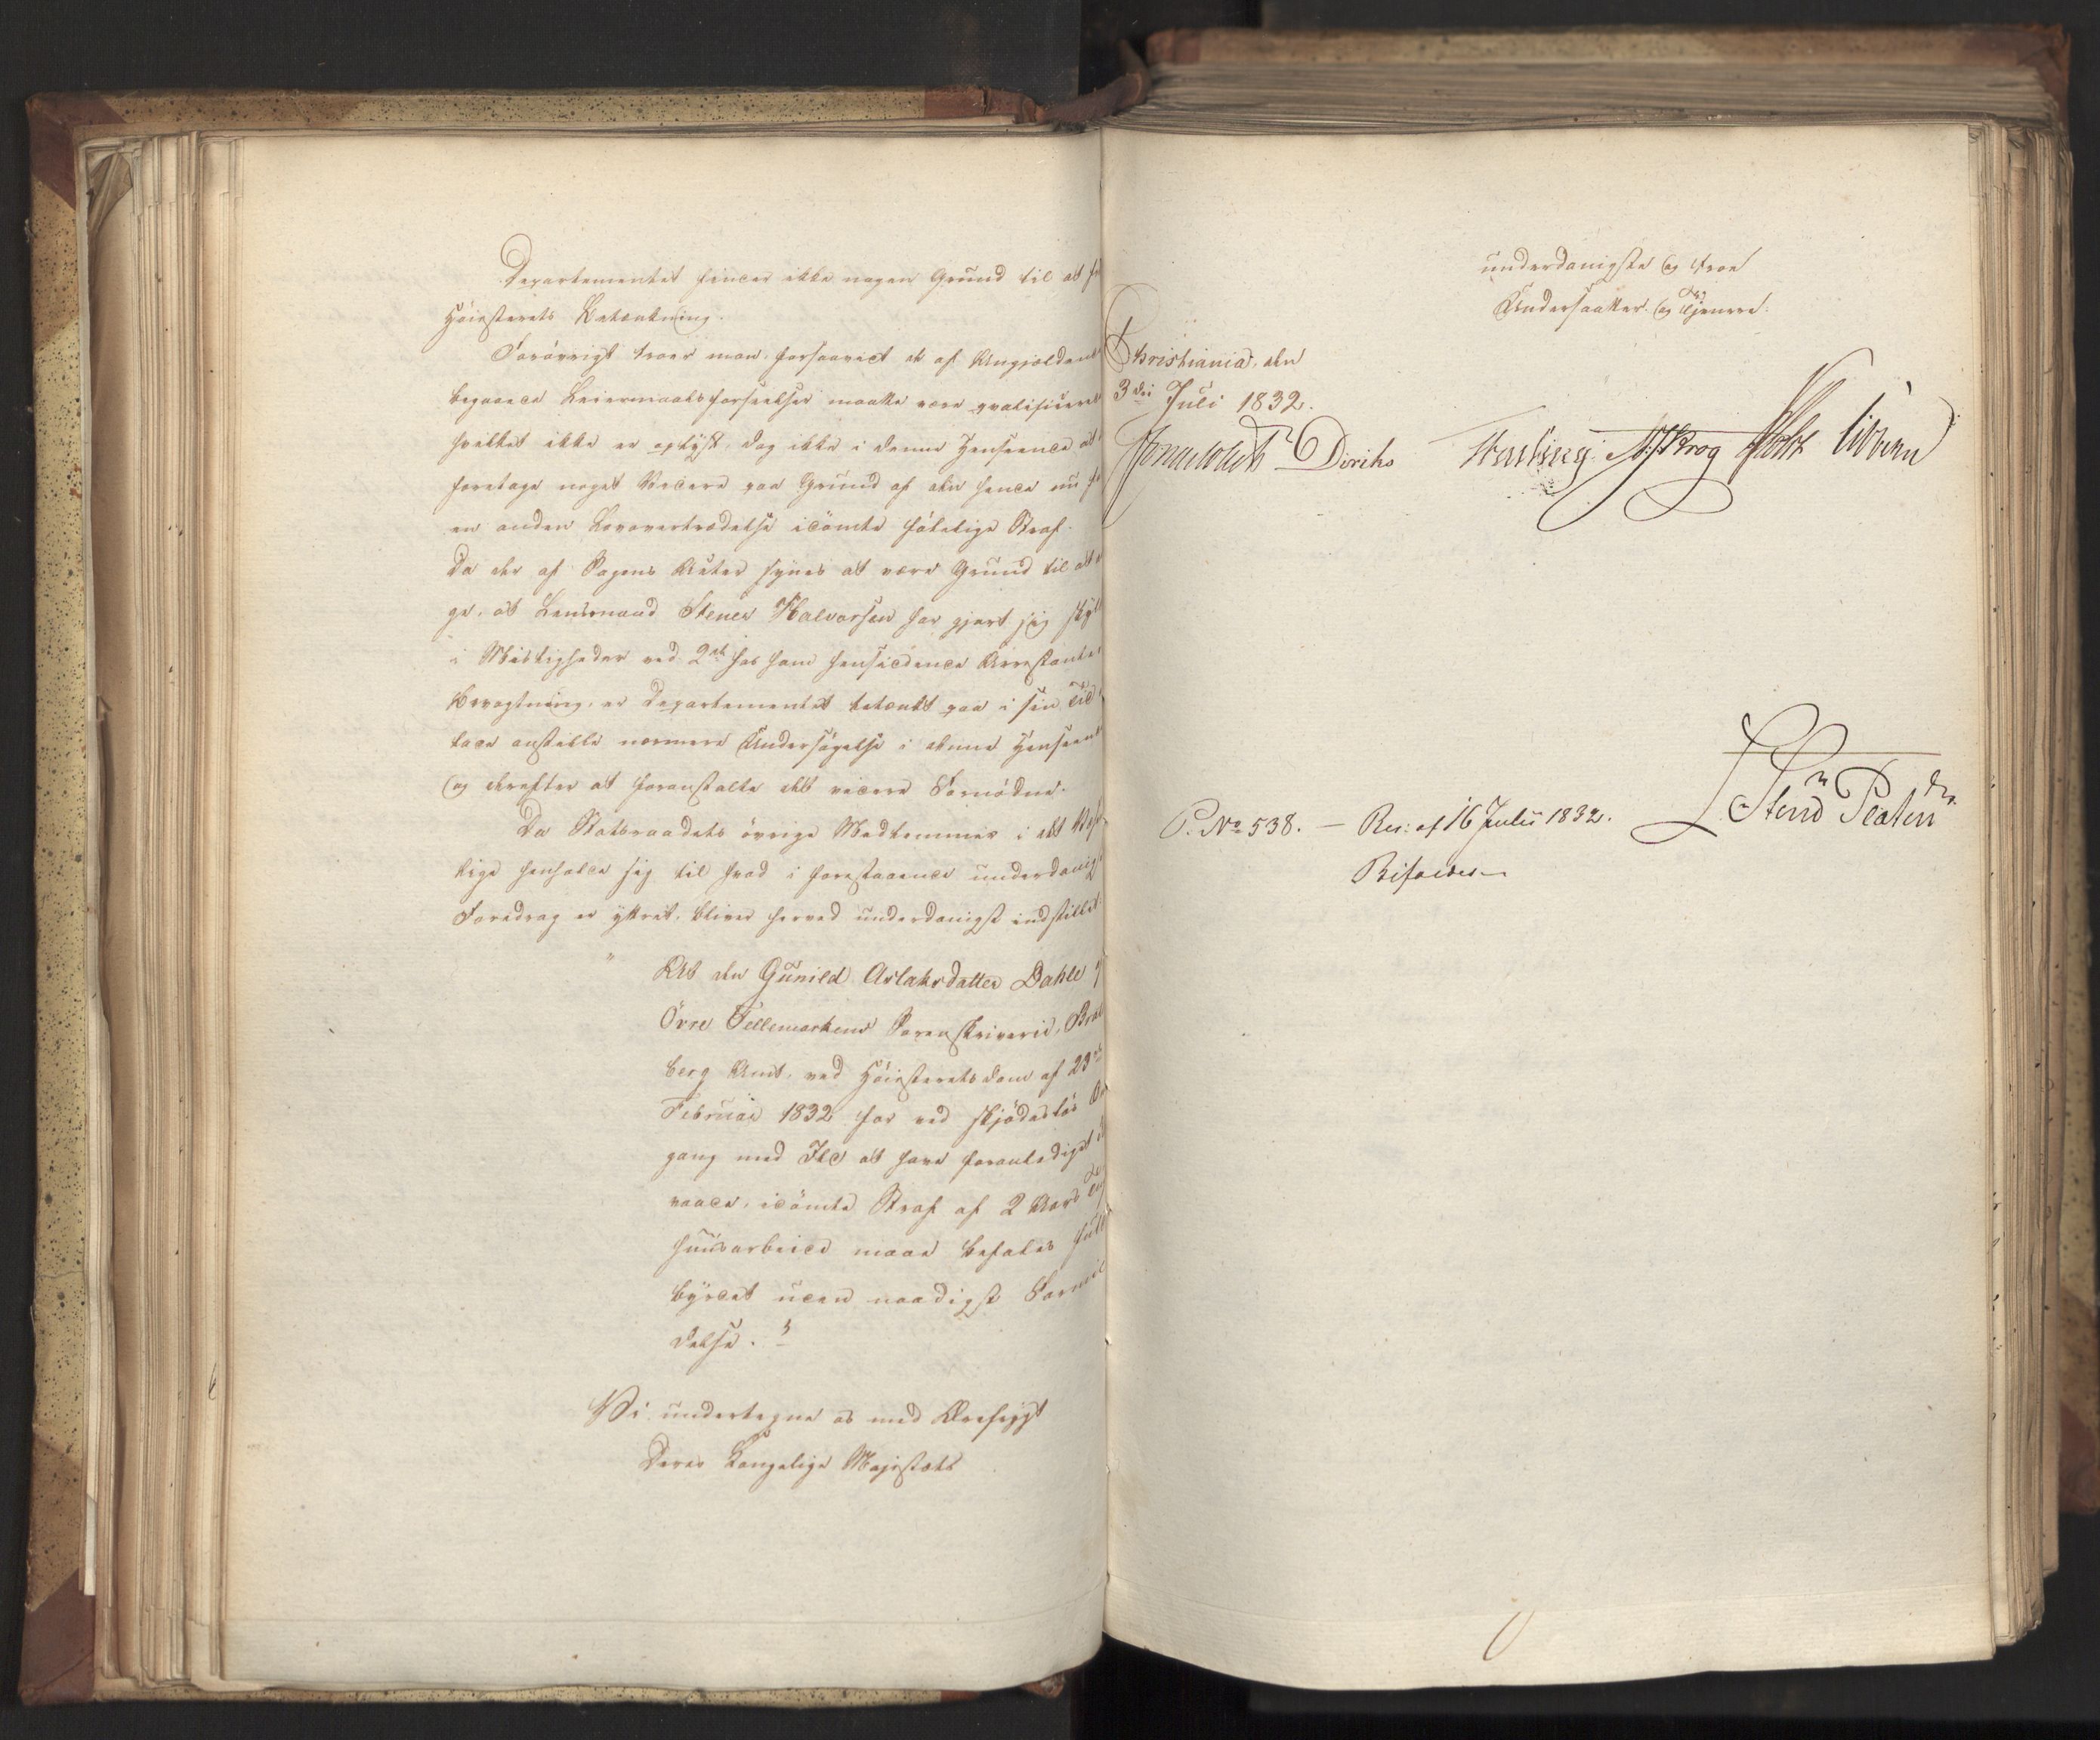 Departementet finder ikke nogen Grund til at
Höiesterets Betænkning.
Forövrigt troer man, forsaavidt de af Angjældende
begaaede Leiermaalsforseelser maatte være qvalificerede
hvilket ikke er oplyst, dog ikke i denne Henseende at
foretage noget Videre paa Grund af den hende nu for
en anden Lovovertrædelse idömte följelige Straf.
Da der af Sagens Acter synes at være Grund til at
ge, at Lensmand Stener Halvorsen har gjort sig skyl
i Misligheder ved 2de hos ham hensiddende Arrestanters
Bevogtning, er Departementet betænkt paa i sin Tid
lade anstille nærmere Undersögelse i denne Henseende
og derefter at foranstalte det videre Fornödne.
Da Statsraadets övrige Medlemmer i det Væsent
lige henholde sig til hvad i forestaaende underdanigst
Foredrag er yttret, bliver herved underdanigst indstillet:
" At den Gunild Aslaksdatter Dahle
Övre Tellemarkens Sorenskriverie, Brads
berg Amt, ved Höiesteretsdom af 23de
Februar 1832 for ved skjödeslös Om
gang med Ild at have foranlediget
vaade, idömte Straf af 2 Aars Tugt
huusarbeide maae befales fuld
byrdet uden naadigst Formil
delse. "
Vi undertegne os med Ærefrygt
Deres Kongelige Majestæts
underdanigste og troe
Undersaatter og Tjenere.
Christiania, den
3die Juli 1832.
Diriks M Krog Holst Vibe
P. No 538. — Res: af 16 Julii 1832.
Bifaldes